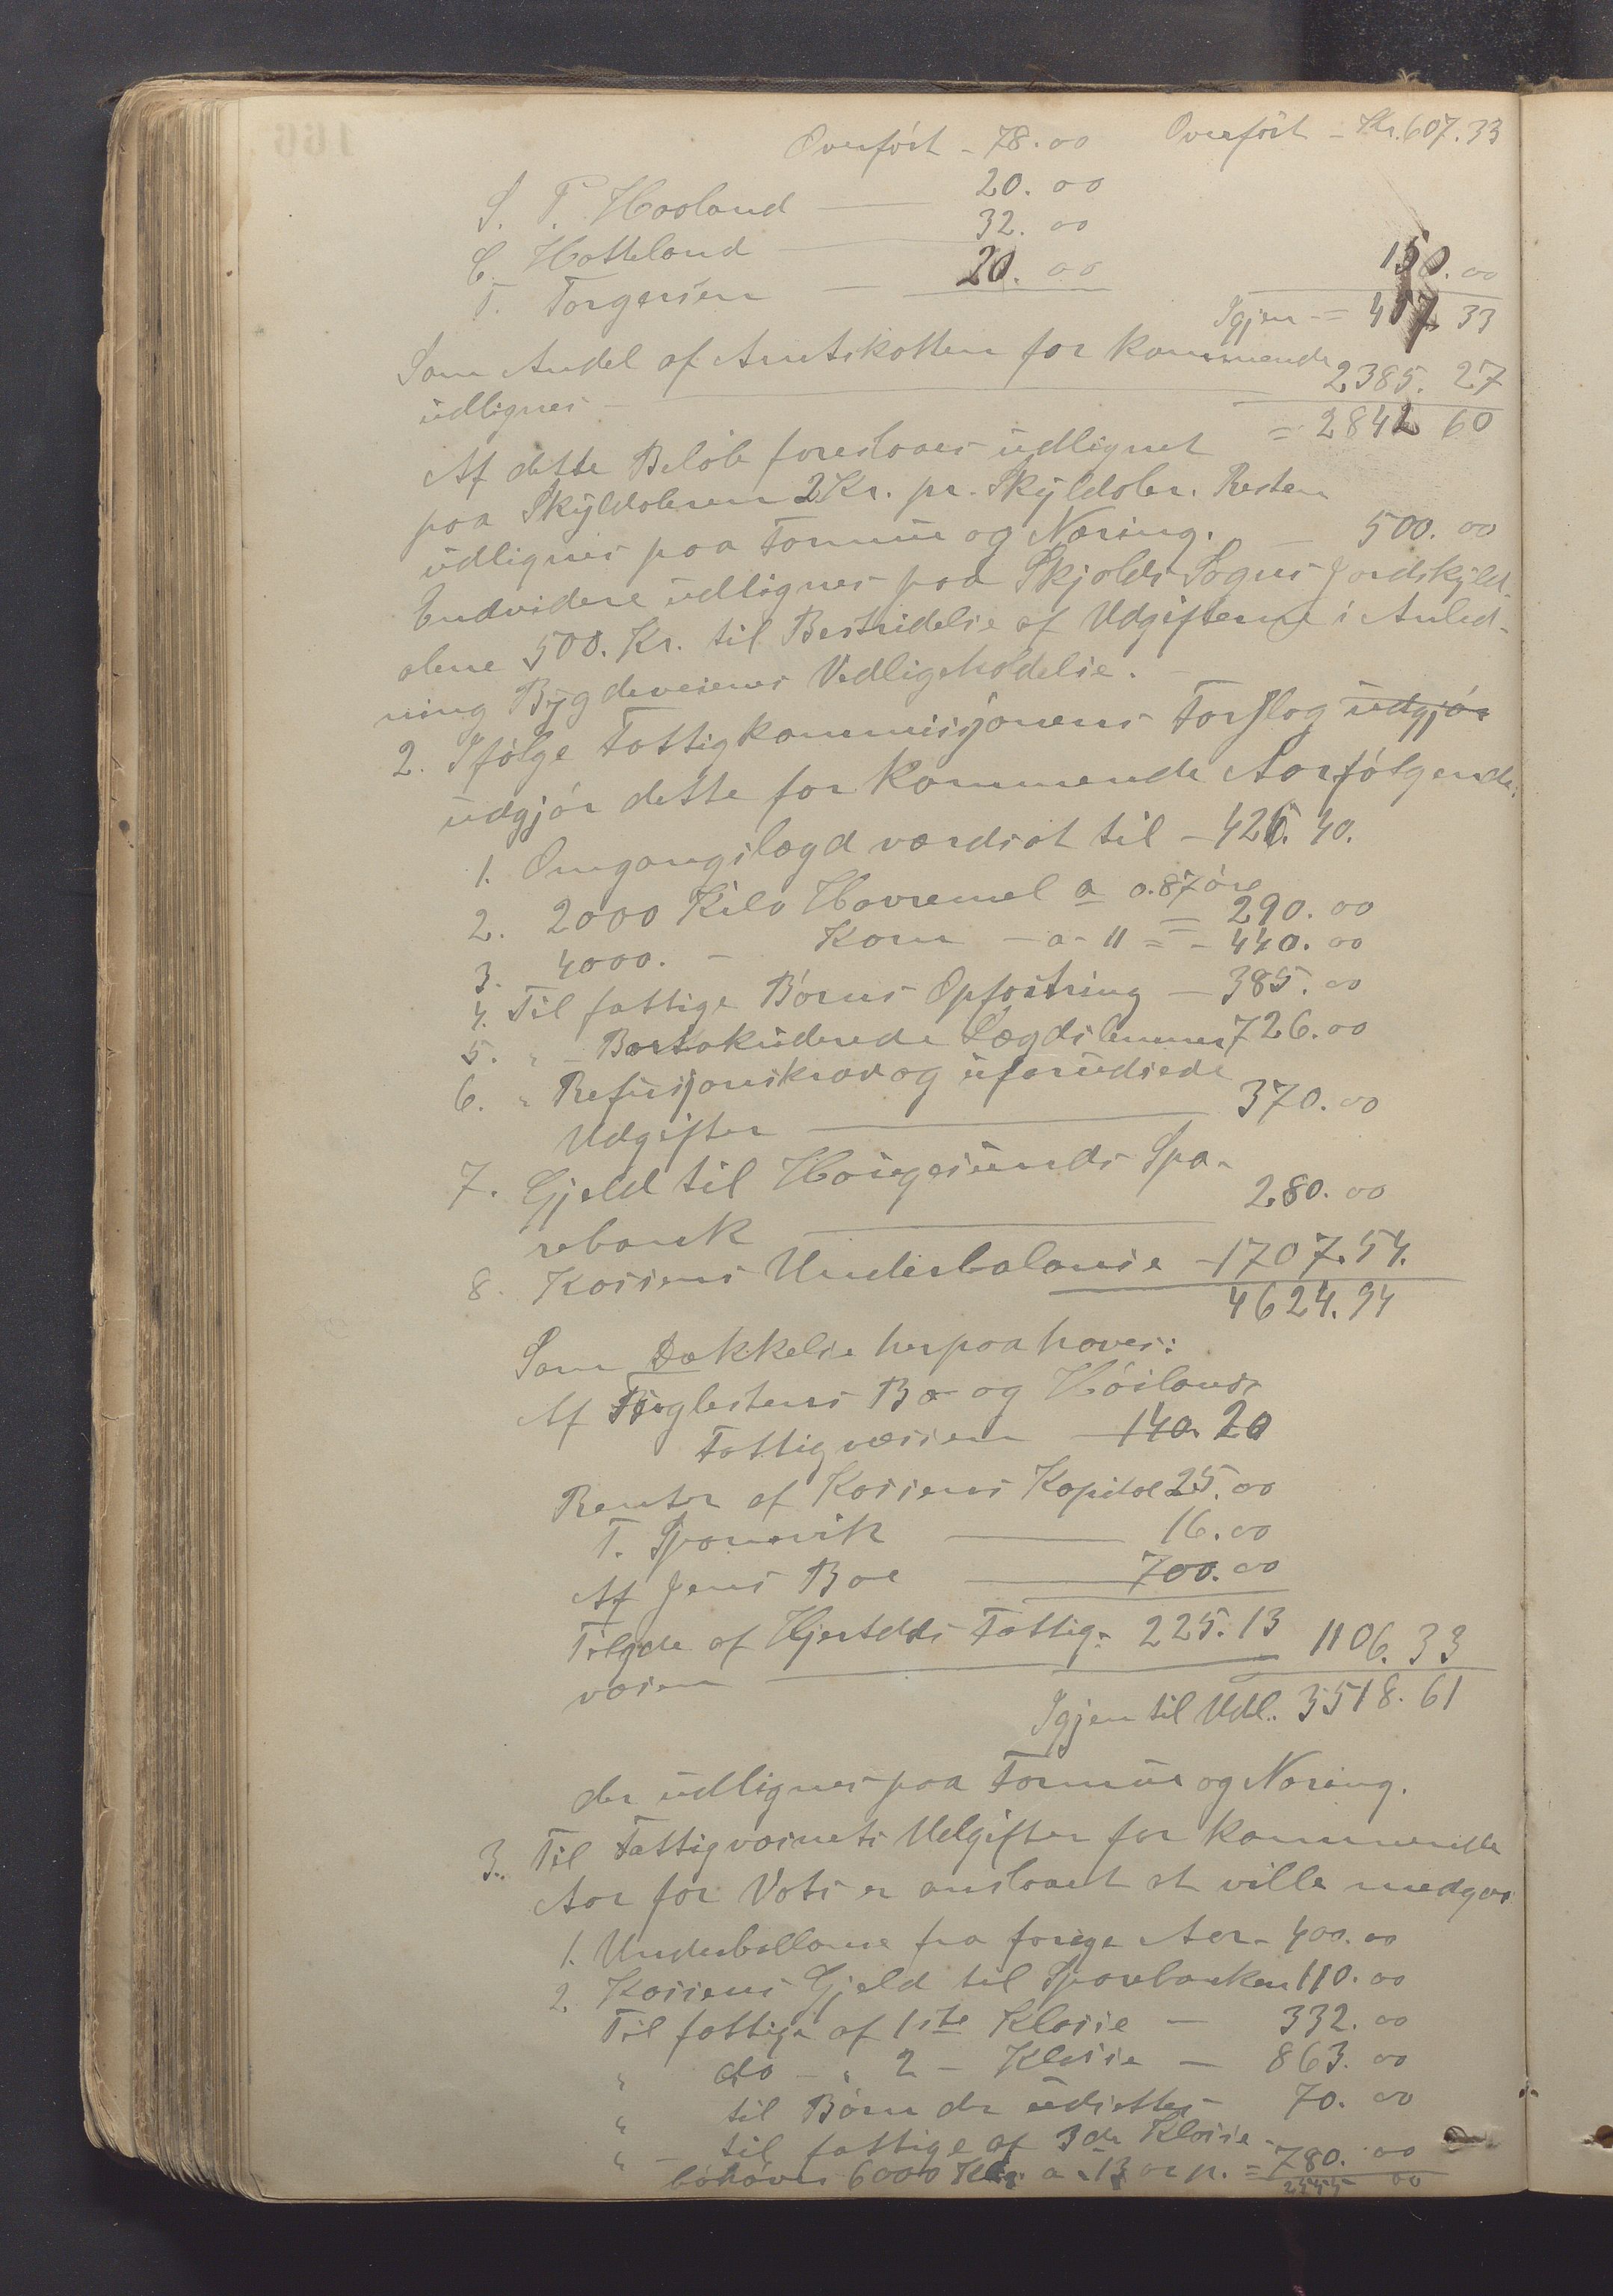 Overført - 78.00 Overført - Kr. 607.33
S. T. Haaland — 20.00
C. Hatteland — 32.00
T. Torgersen — 20.00 150.00
Igjen = 457 33
Som Andel af Amtskatten for kommende
udlignes — 2385. 27
= 2842 60
Af dette Beløb foreslaaes udlignet
paa Skyldøren 2 Kr. pr. Skyldøre. Resten
udlignes paa Formue og Næring. — 500.00
Endvidere udlignes paa Skjolds Sogns Jordskyld-
ørene 500. Kr. til Bestridelse af Udgifterne i Anled-
ning Bygdeveienes Vedligeholdelse.
2. Ifølge Fattigkommissjonens Forslag udgjør
udgjør dette for kommende Aar følgende:
1. Omgangslægd værdsat til - 426. 40.
2. 2000 Kilo Havremel a 0.87 øre = 290.00
3. 4000. - Korn - a - 11 = - 440.00
4. Til fattige Børns Opfostring — 385.00
5. " - Bortakuderede Lægdslemmer 726.00
6. " Refusjonskrav og uforudsede
Udgifter — 370.00
7. Gjeld til Haugesunds Spa-
rebank — 280.00
8. Kassens Underbalanse - 1707.54.
4624.94
Som Dækkelse herpaa haves:
Af Fuglestens Bo og Høilands
Fattigvæsen — 140. 20
Renter af Kassens Kapital 25.00
T. Spannvik — 16.00
Af Jens Boe — 700.00
Tilgode af Hjertdals Fattig- 225.13 1106.33
væsen —
Igjen til Udl.. 3518.61
der udlignes paa Formue og Næring.
3. Til Fattigvæsnets Udgifter for kommende
Aar for Vats er anslaaet at ville medgaa
1. Underballanse fra forige Aar - 400.00
2. Kassens Gjeld til Sparebanken 110.00
Til fattige af 1ste Klasse — 332.00
" do - " 2 - Klasse — 863.00
" til Børn der udsettes - 70.00
" - til fattige af 3de Klasse
behøves 6000 Kilo a 13 ør p. = 780.00
2555 00